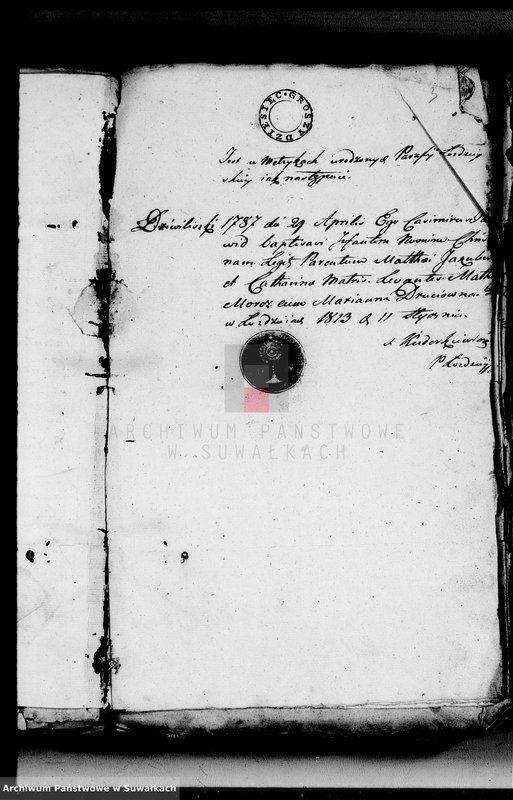 DZIESIĘC GROSZY
5
Jest w Metrykach urodzonych Parafij Łozdziey
skiey jak następuie.
Dziwiliszki 1787 die 29 Aprilis Ego Casimirus
wid baptisavi Infantem Nomine
nam. Legit. Parentum Matthæi
et Catharina Matri. Levantes. Math
Moroz cum Marianna Druciowna
w Łozdzieiach 1813 d 11 Stycznia.
P Łozdziey
ARCHIWUM PAŃSTWOWE
W SUWAŁKACH
Archiwum Państwowe w Suwałkach